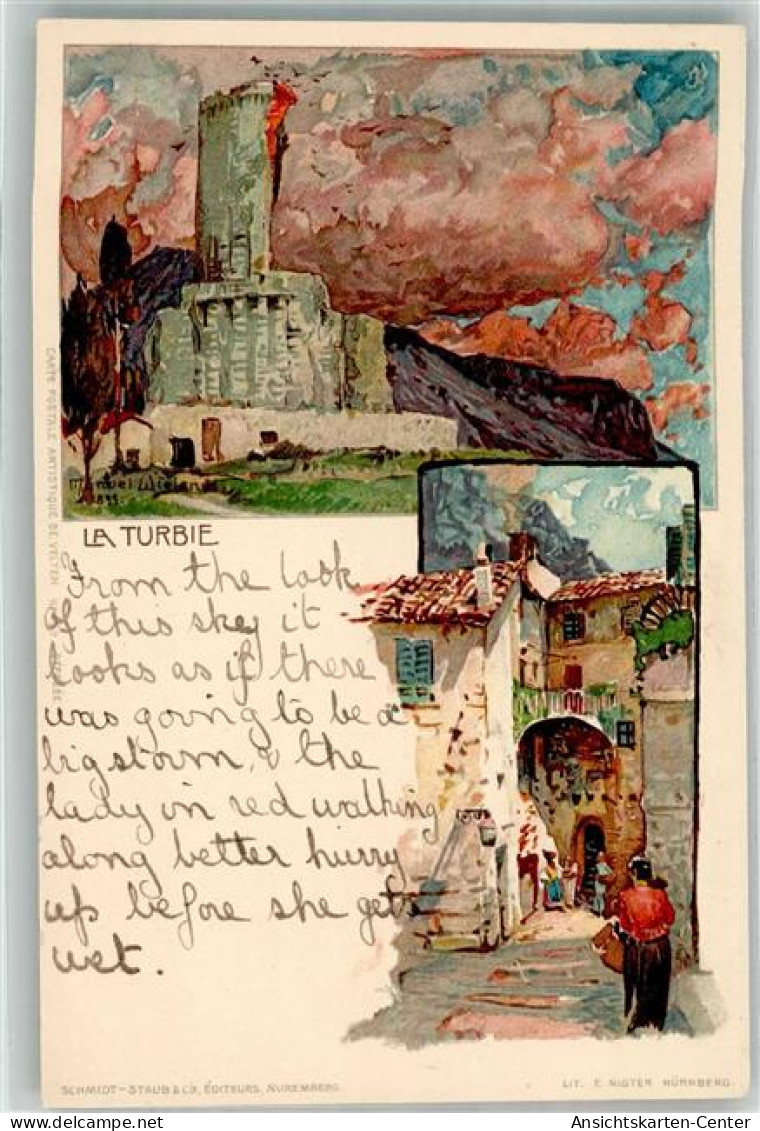 Manuel Wielandt
1899
LA TURBIE
From the look
of this sky it
looks as if there
was going to be a
big storm, & the
lady in red walking
along better hurry
up before she gets
wet.
CARTE POSTALE ARTISTIQUE DE VELTEN
SCHMIDT-STAUB & Co., ÉDITEURS, NUREMBERG.
LIT. E. NISTER NÜRNBERG.
oldthing.de
Ansichtskarten-Center